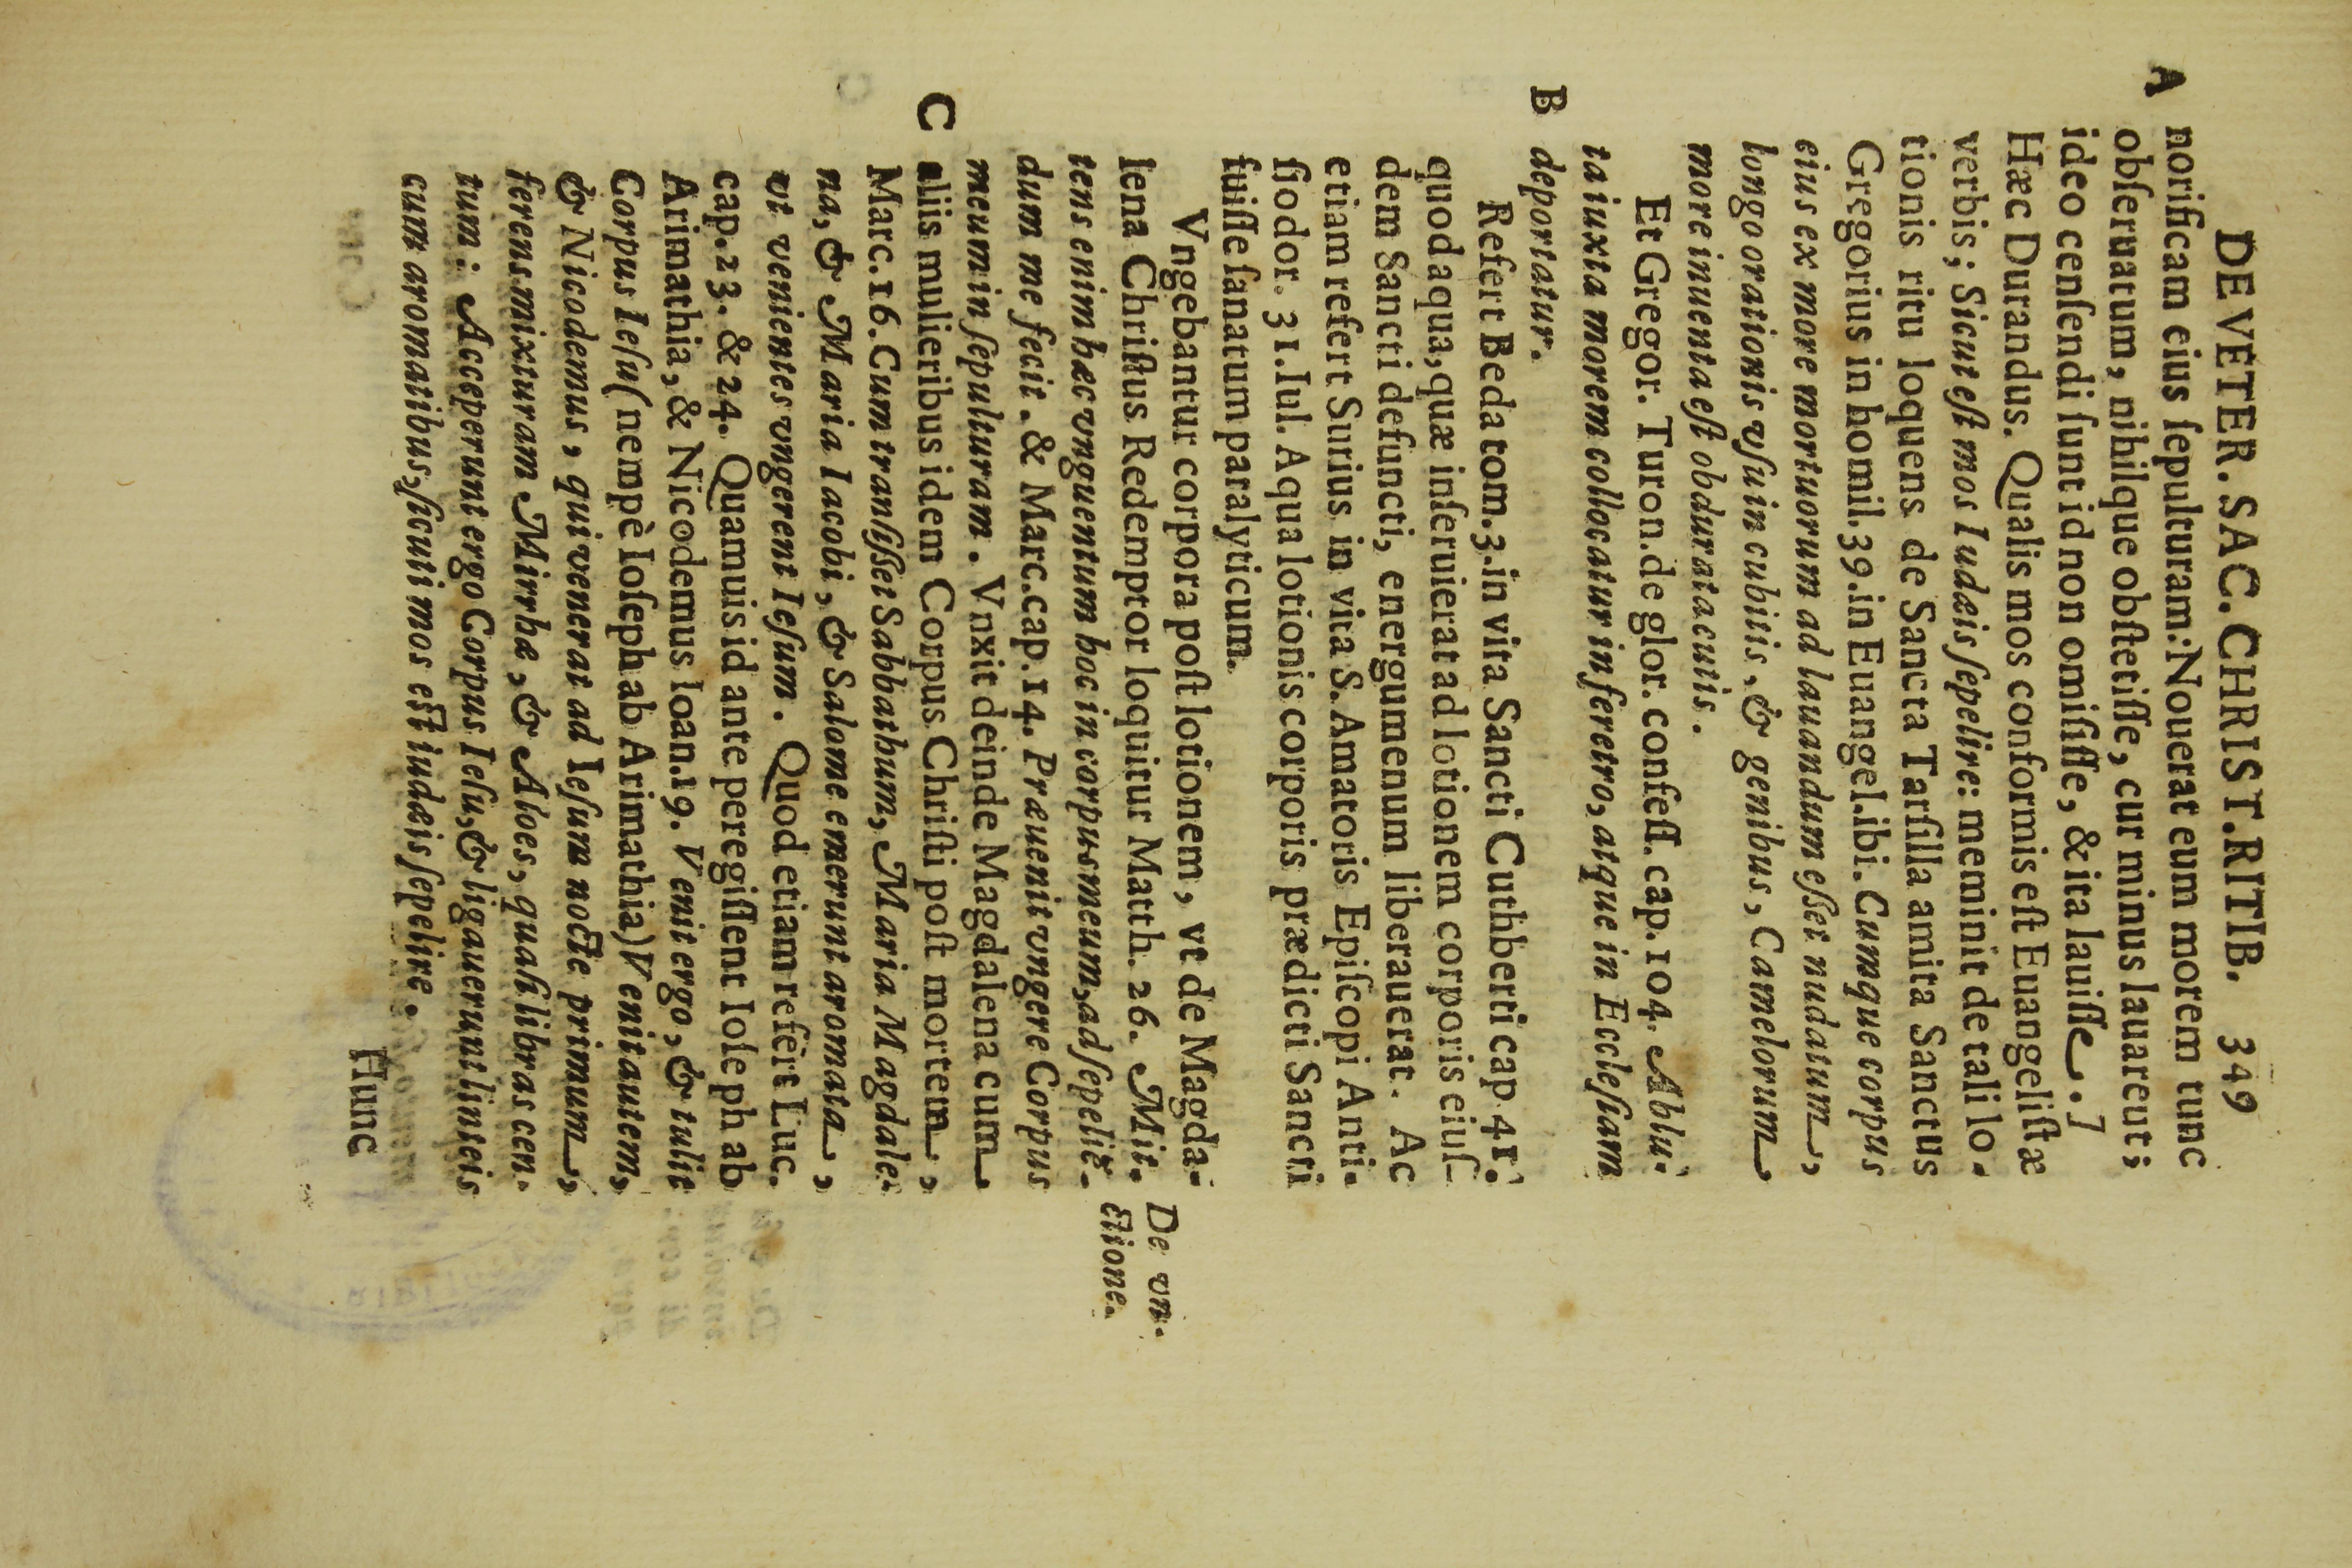 DE VETER. SAC. CHRIST. RITIB. 349
A norificam eius ſepulturam: Nouerat eum morem tunc
obſeruatum, nihilque obſtetiſſe, cur minus lauareut;
ideo cenſendi ſunt id non omiſiſſe, & ita lauiſſe.]
Hæc Durandus. Qualis mos conformis eſt Euangeliſtæ
verbis; Sicut eſt mos Iudæis ſepelire: meminit de tali lo-
tionis ritu loquens de Sancta Tarſilla amita Sanctus
Gregorius in homil. 39. in Euangel. ibi. Cumque corpus
eius ex more mortuorum ad lauandum eſſet nudatum,
longo orationis vſu in cubitis, & genibus, Camelorum
more inuenta eſt obdurata cutis.
Et Gregor. Turon. de glor. confeſſ. cap. 104. Ablu-
ta iuxta morem collocatur in feretro, atque in Eccleſiam
B deportatur.
Refert Beda tom. 3. in vita Sancti Cuthberti cap 41.
quod aqua, quæ inſeruierat ad lotionem corporis eiuſ-
dem Sancti defuncti, energumenum liberauerat. Ac
etiam refert Surius in vita S. Amatoris Epiſcopi Anti-
ſiodor. 31. Iul. Aqua lotionis corporis prædicti Sancti
fuiſſe ſanatum paralyticum.
Vngebantur corpora poſt lotionem, vt de Magda-
lena Chriſtus Redemptor loquitur Matth. 26. Mit-
tens enim hæc vnguentum hoc in corpus meum, ad ſepeliẽ-
dum me fecit. & Marc. cap. 14. Præuenit vngere Corpus
meum in ſepulturam. Vnxit deinde Magdalena cum
C aliis mulieribus idem Corpus Chriſti poſt mortem,
Marc. 16. Cum tranſiſſet Sabbathum, Maria Magdale-
na, & Maria Iacobi, & Salome emerunt aromata,
vt venientes vngerent Ieſum. Quod etiam refert Luc.
cap. 23. & 24. Quamuis id ante peregiſſent Ioſeph ab
Arimathia, & Nicodemus Ioan. 19. Venit ergo, & tulit
Corpus Ieſu (nempè Ioſeph ab Arimathia) Venit autem,
& Nicodemus, qui venerat ad Ieſum nocte primum,
ferens mixturam Mirrhæ, & Aloes, quaſi libras cen-
tum: Acceperunt ergo Corpus Ieſu, & ligauerunt linteis
cum aromatibus, ſicuti mos eſt iudæis ſepelire.
Hunc
De vn-
ctione.